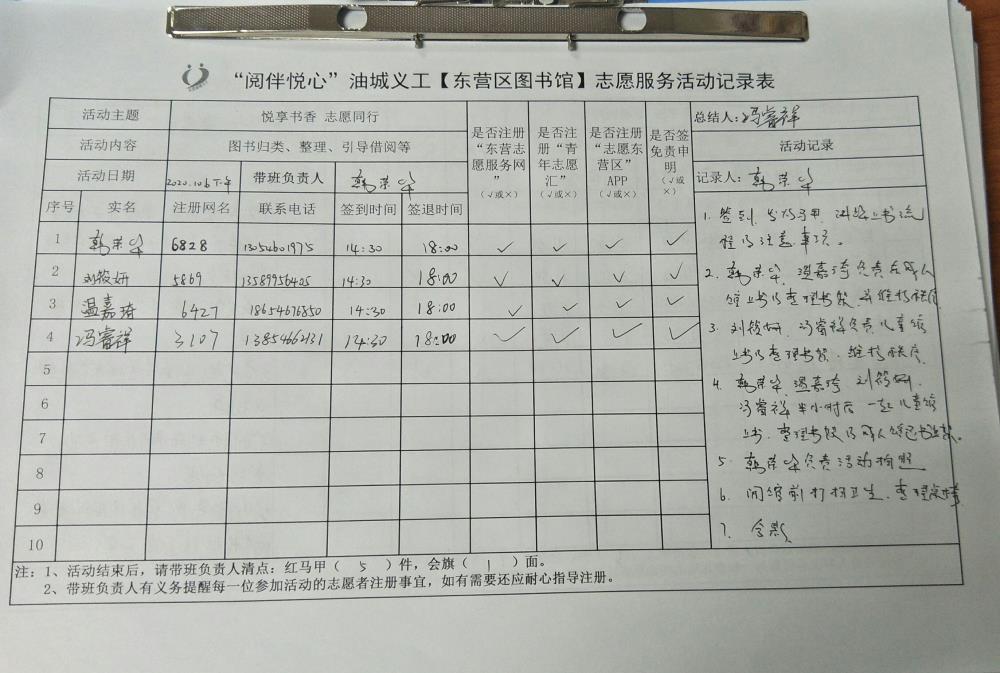 “阅伴悦心”油城义工【东营区图书馆】志愿服务活动记录表
活动主题 悦享书香 志愿同行
活动内容 图书归类、整理、引导借阅等
活动日期 2020.10.6下午 带班负责人 韩荣华
序号 实名 注册网名 联系电话 签到时间 签退时间
是否注册“东营志愿服务网”（√或×）
是否注册“青年志愿汇”（√或×）
是否注册“志愿东营区”APP（√或×）
是否签免责申明（√或×）
总结人：冯睿祥
活动记录
记录人：韩荣华
1 韩荣华 6828 13054601975 14:30 18:00 ✓ ✓ ✓ ✓
2 刘筱妍 5869 13589956405 14:30 18:00 ✓ ✓ ✓ ✓
3 温嘉琦 6427 18654676850 14:30 18:00 ✓ ✓ ✓ ✓
4 冯睿祥 3107 13854662131 14:30 18:00 ✓ ✓ ✓ ✓
5
6
7
8
9
10
1. 签到，发放马甲，讲解上书流
程及注意事项。
2. 韩荣华、温嘉琦负责在成人
馆上书及整理书架，并维持秩序
3. 刘筱妍、冯睿祥负责儿童馆
上书及整理书架，维持秩序
4. 韩荣华、温嘉琦、刘筱妍、
冯睿祥半小时后一起儿童馆
上书、整理书架及成人馆
5. 韩荣华负责活动拍照
6. 闭馆前打扫卫生，整理桌椅
7. 合影
注：1、活动结束后，请带班负责人清点：红马甲（ 5 ）件，会旗（ 1 ）面。
2、带班负责人有义务提醒每一位参加活动的志愿者注册事宜，如有需要还应耐心指导注册。